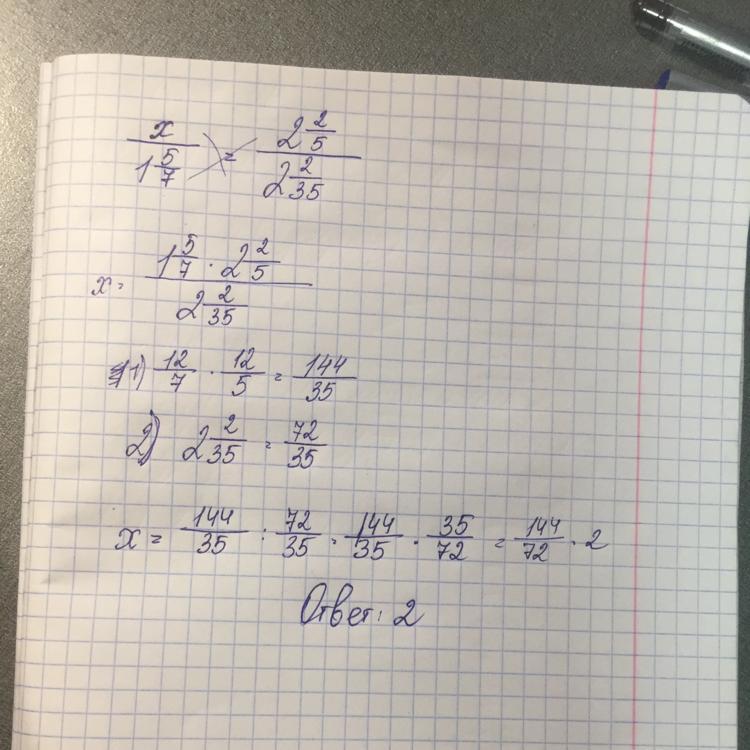 x / 1 5/7 = 2 2/5 / 2 2/35
x = 1 5/7 · 2 2/5 / 2 2/35
1) 12/7 · 12/5 = 144/35
2) 2 2/35 = 72/35
x = 144/35 : 72/35 = 144/35 · 35/72 = 144/72 = 2
Ответ: 2